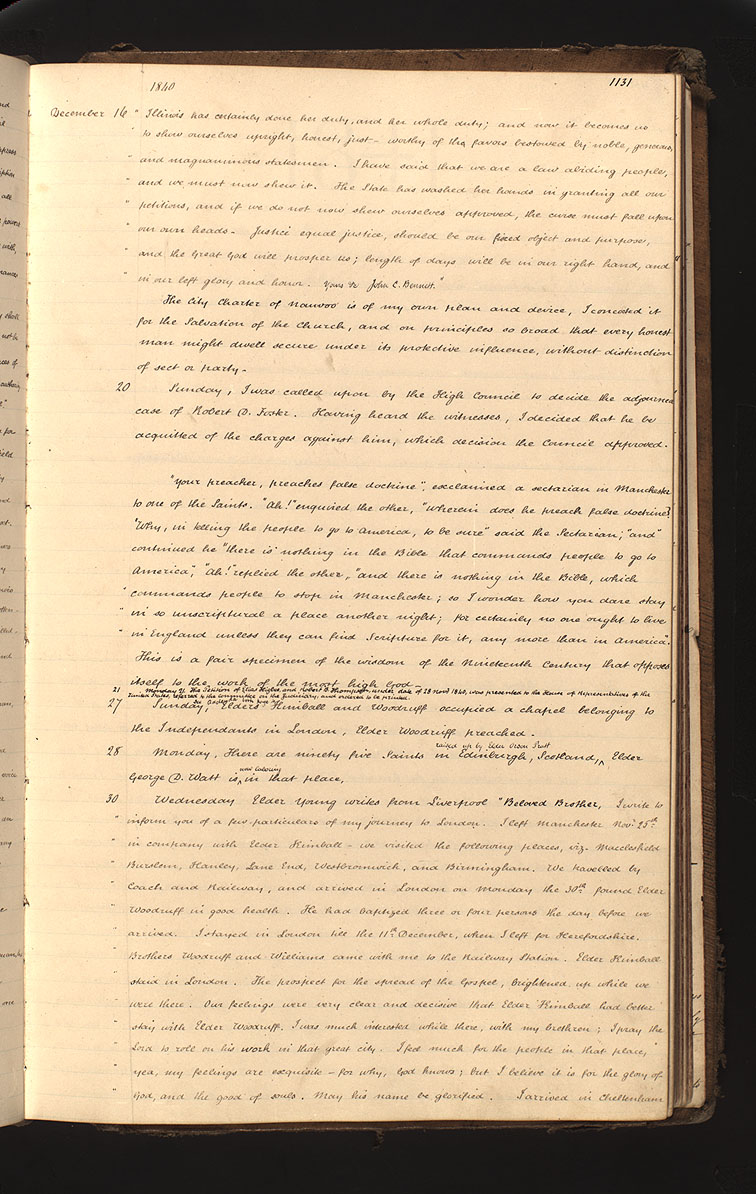 1840
1131
December 16 " Illinois has certainly done her duty, and her whole duty; and now it becomes us
" to show ourselves upright, honest, just - worthy of the favors bestowed by noble, generous,
" and magnanimous statesmen. I have said that we are a law abiding people,
" and we must now shew it. The State has washed her hands in granting all our
" petitions, and if we do not now shew ourselves approved, the curse must fall upon
" our own heads - Justice equal justice, should be our fixed object and purpose,
" and the Great God will prosper us; length of days will be in our right hand, and
" in our left glory and honor. Yours &c John C. Bennett."
The City Charter of Nauvoo is of my own plan and device, I concocted it
for the Salvation of the Church, and on principles so broad that every honest
man might dwell secure under its protective influence, without distinction
of sect or party.
20 Sunday, I was called upon by the High Council to decide the adjourned
case of Robert D. Foster. Having heard the witnesses, I decided that he be
acquitted of the charges against him, which decision the Council approved.
"Your preacher, preaches false doctrine", exclaimed a sectarian in Manchester
to one of the Saints. "Ah!" enquired the other, "wherein does he preach false doctrine?"
"Why, in telling the people to go to America, to be sure" said the Sectarian; "and"
continued he "there is nothing in the Bible that commands people to go to
America", "Ah!" replied the other, "and there is nothing in the Bible, which
" commands people to stop in Manchester; so I wonder how you dare stay
" in so unscriptural a place another night; for certainly no one ought to live
" in England unless they can find Scripture for it, any more than in America".
This is a fair specimen of the wisdom of the Nineteenth Century that opposes
itself to the work of the most high God -
21 Monday 21 The Petition of Elias Higbee and Robert B. Thompson, under date of 28 Nov 1840, was presented to the House of Representatives of the
United States, referred to the Committee on the Judiciary, and ordered to be printed.
27 Sunday, Elders Kimball and Woodruff occupied a chapel belonging to
the Independants in London, Elder Woodruff preached.
raised up by Elder Orson Pratt
28 Monday, There are ninety five Saints in Edinburgh, Scotland, Elder
now laboring
George D. Watt is in that place.
30 Wednesday Elder Young writes from Liverpool "Beloved Brother, I write to
" inform you of a few particulars of my journey to London. I left Manchester Nov.r 25th
" in company with Elder Kimball - we visited the following places, viz. Macclesfield
" Burslem, Hanley, Lane End, Westbromwich, and Birmingham. We travelled by
" Coach and Railway, and arrived in London on Monday the 30th found Elder
" Woodruff in good health. He had baptized three or four persons the day before we
" arrived. I stayed in London till the 11th December, when I left for Herefordshire.
" Brothers Woodruff and Williams came with me to the Railway Station. Elder Kimball
" staid in London. The prospect for the spread of the Gospel, brightened up while we
" were there. Our feelings were very clear and decisive that Elder Kimball had better
" stay with Elder Woodruff. I was much interested while there, with my brethren; I pray the
" Lord to roll on his work in that great city. I feel much for the people in that place,
" yea, my feelings are exquisite - for why, God knows; but I believe it is for the glory of
" God, and the good of souls. May his name be glorified. I arrived in Cheltenham